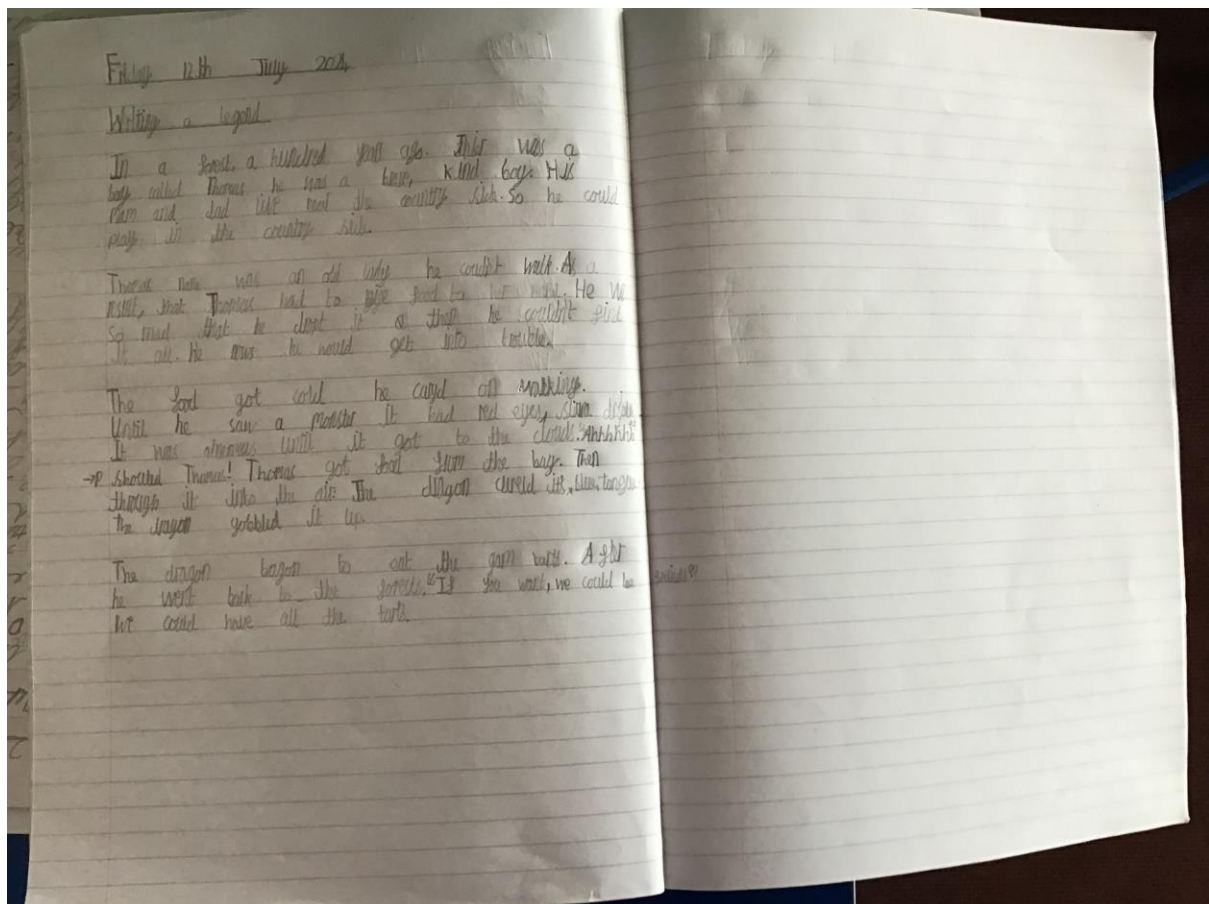 Friday 12th July 2024
Writing a legend
In a forest, a hundred years ago. Ther was a
boy called Thomas he was a brave, kind boy. His
mam and dad live near the country side. So he could
play in the country side.
Thomas was an old lady he couldn't walk. As a
that Thomas had to give food to her. He
So mad that he it he couldn't find
it all. He he would get into trouble.
The food got cold he caryd on walking.
Until he saw a monster it had red eyes,
It was until it got to the clouds. "Ahhhhh"
shouted Thomas! Thomas got food from the bag. Then
through it into the air. The dragon its,
the dragon gobbled it up.
The dragon bagon to eat the jam tarts. After
he went back to the "If you want, we could be
We could have all the tarts.